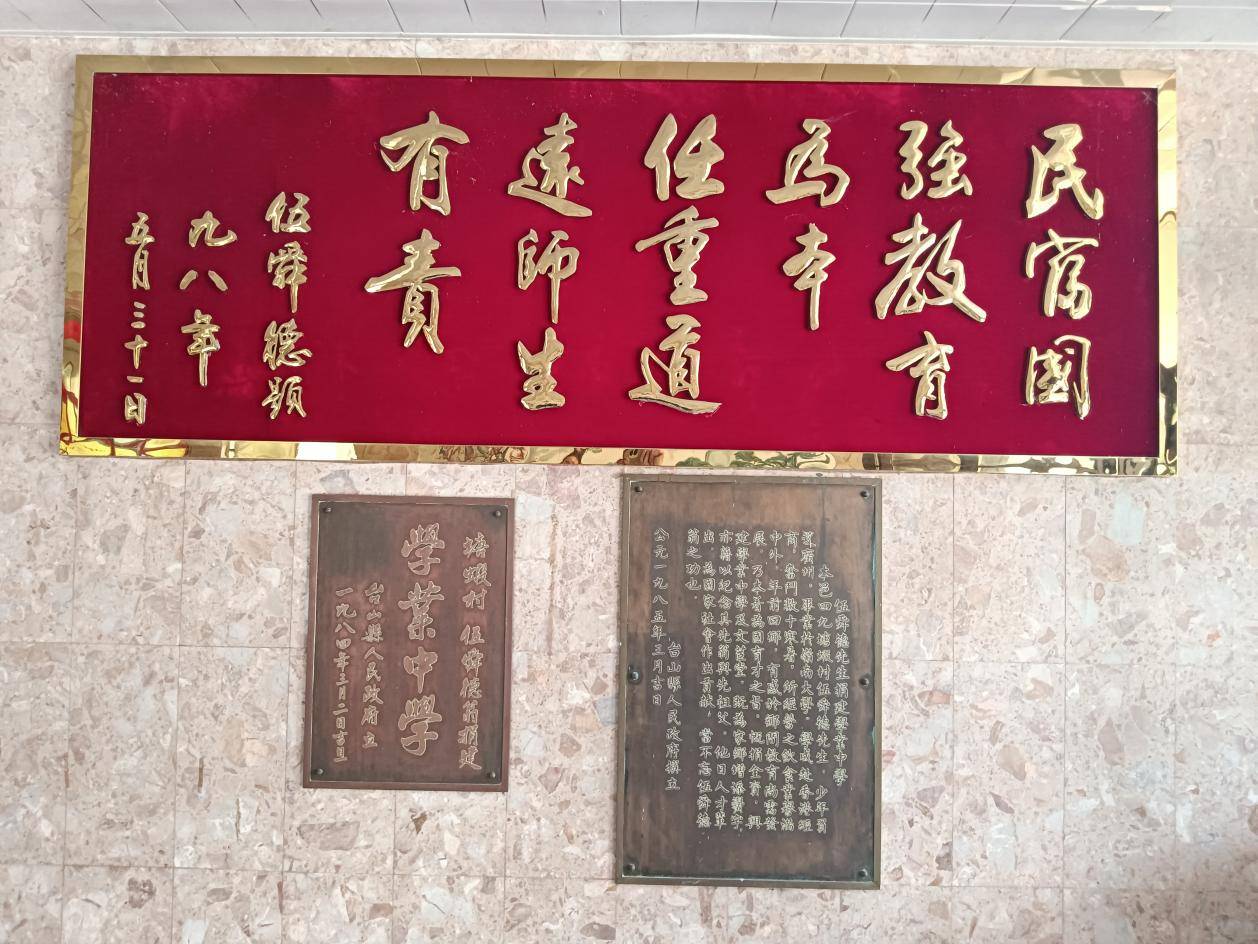 民富國
強教育
為本
任重道
遠師生
有責
伍舜德題
九八年
五月三十一日
塘蝦村 伍舜德翁捐建
學業中學
台山縣人民政府立
一九八四年三月二日吉旦
伍舜德先生捐建學業中學
本邑四九塘蝦村伍舜德先生，少年負
笈廣州，畢業於嶺南大學。學成赴香港經
商，奮鬥數十寒暑，所經營之飲食業譽滿
中外。年前回鄉，有感於鄉閭教育尚需發
展，乃本着為國育才之旨，慨捐金資，興
建學業中學及文萱堂，既為家鄉增添黌宇，
亦藉以紀念其先翁與先祖父。他日人才輩
出，為國家社會作出貢獻，當不忘伍舜德
翁之功也。
台山縣人民政府撰立
公元一九八五年三月吉日